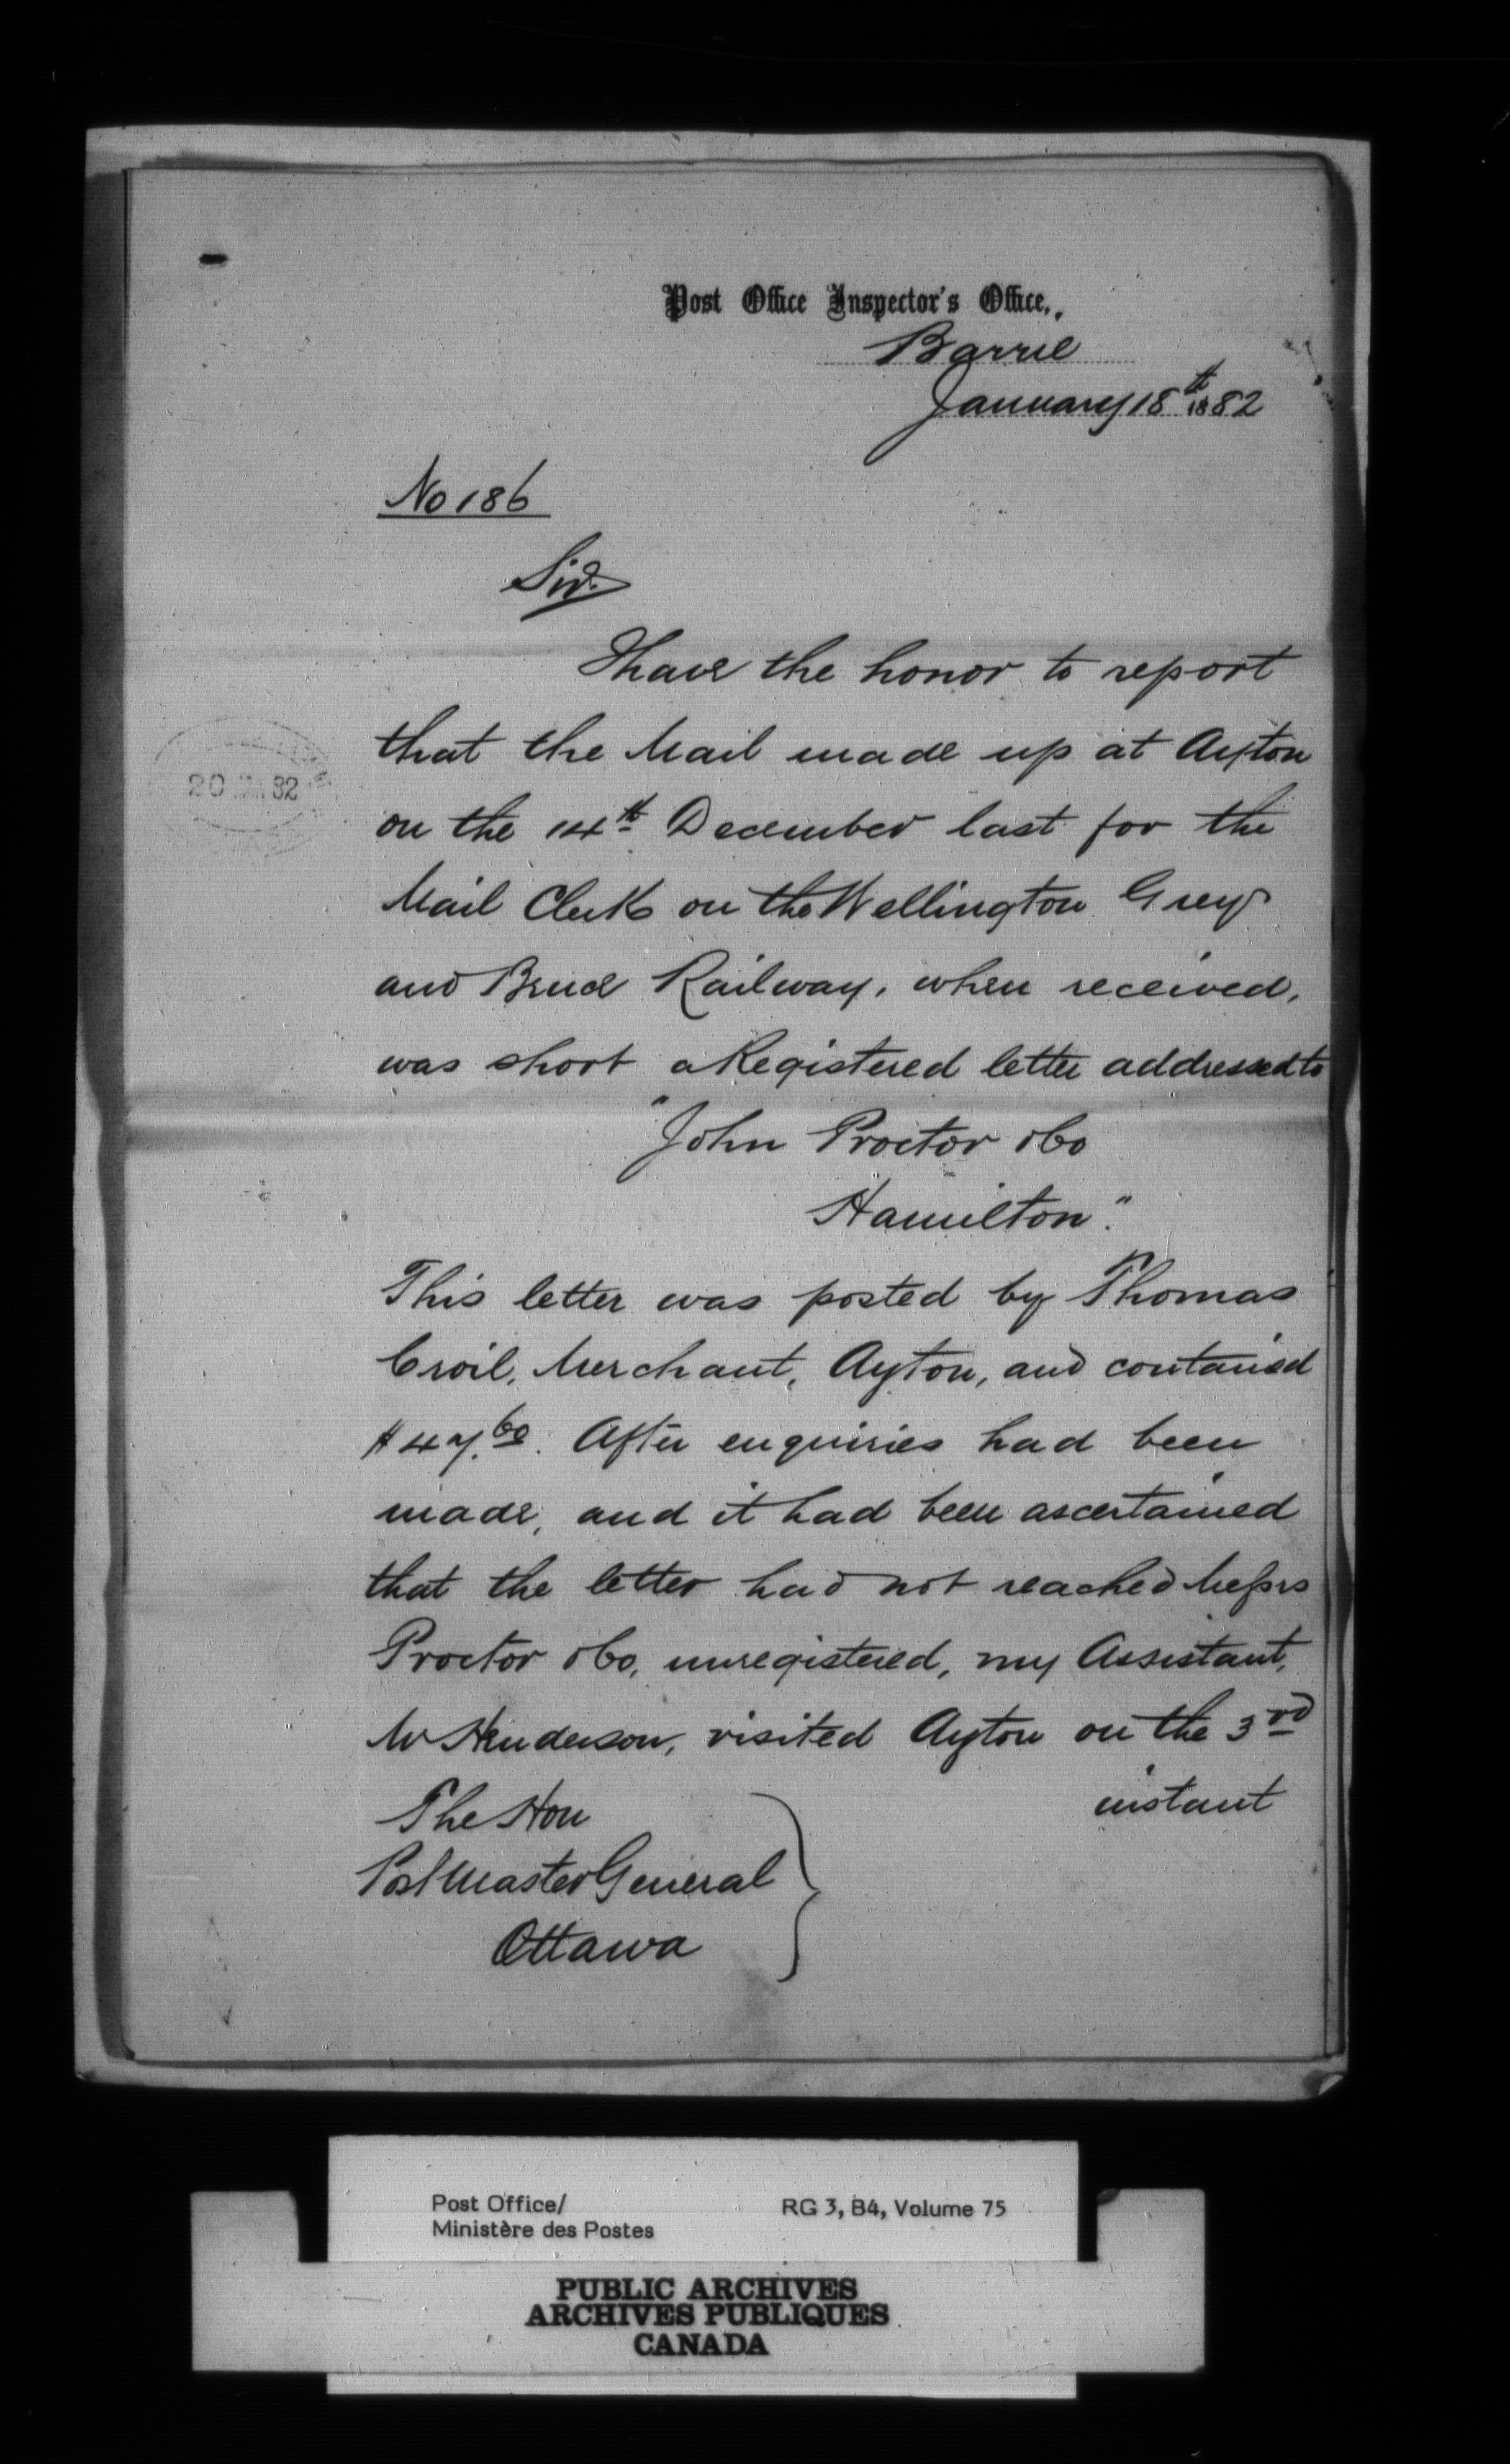 Post Office Inspector's Office,
Barrie
January 18th 1882
No 186
Sir.
I have the honor to report
that the Mail made up at Ayton
on the 14th December last for the
Mail Clerk on the Wellington Grey
and Bruce Railway, when received,
was short a Registered letter addressed to
"John Proctor & Co
Hamilton".
This letter was posted by Thomas
Croil, Merchant, Ayton, and contained
$47.60. After enquiries had been
made, and it had been ascertained
that the letter had not reached Messrs
Proctor & Co, unregistered, my Assistant,
Mr Henderson, visited Ayton on the 3rd
instant
The Hon
PostMaster General
Ottawa
20 82
Post Office/
Ministère des Postes
RG 3, B4, Volume 75
PUBLIC ARCHIVES
ARCHIVES PUBLIQUES
CANADA